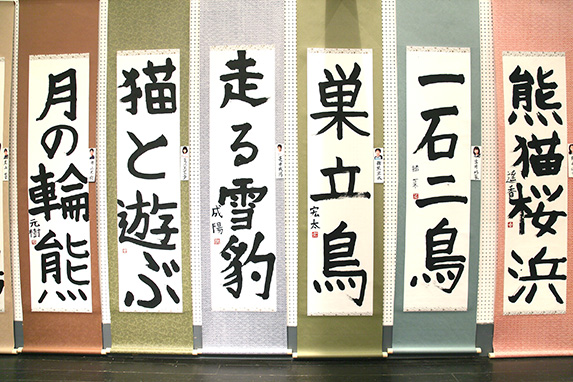 熊猫桜浜
遥香
一石二鳥
巣立鳥
宏太
走る雪豹
成陽
猫と遊ぶ
月の輪熊
元樹